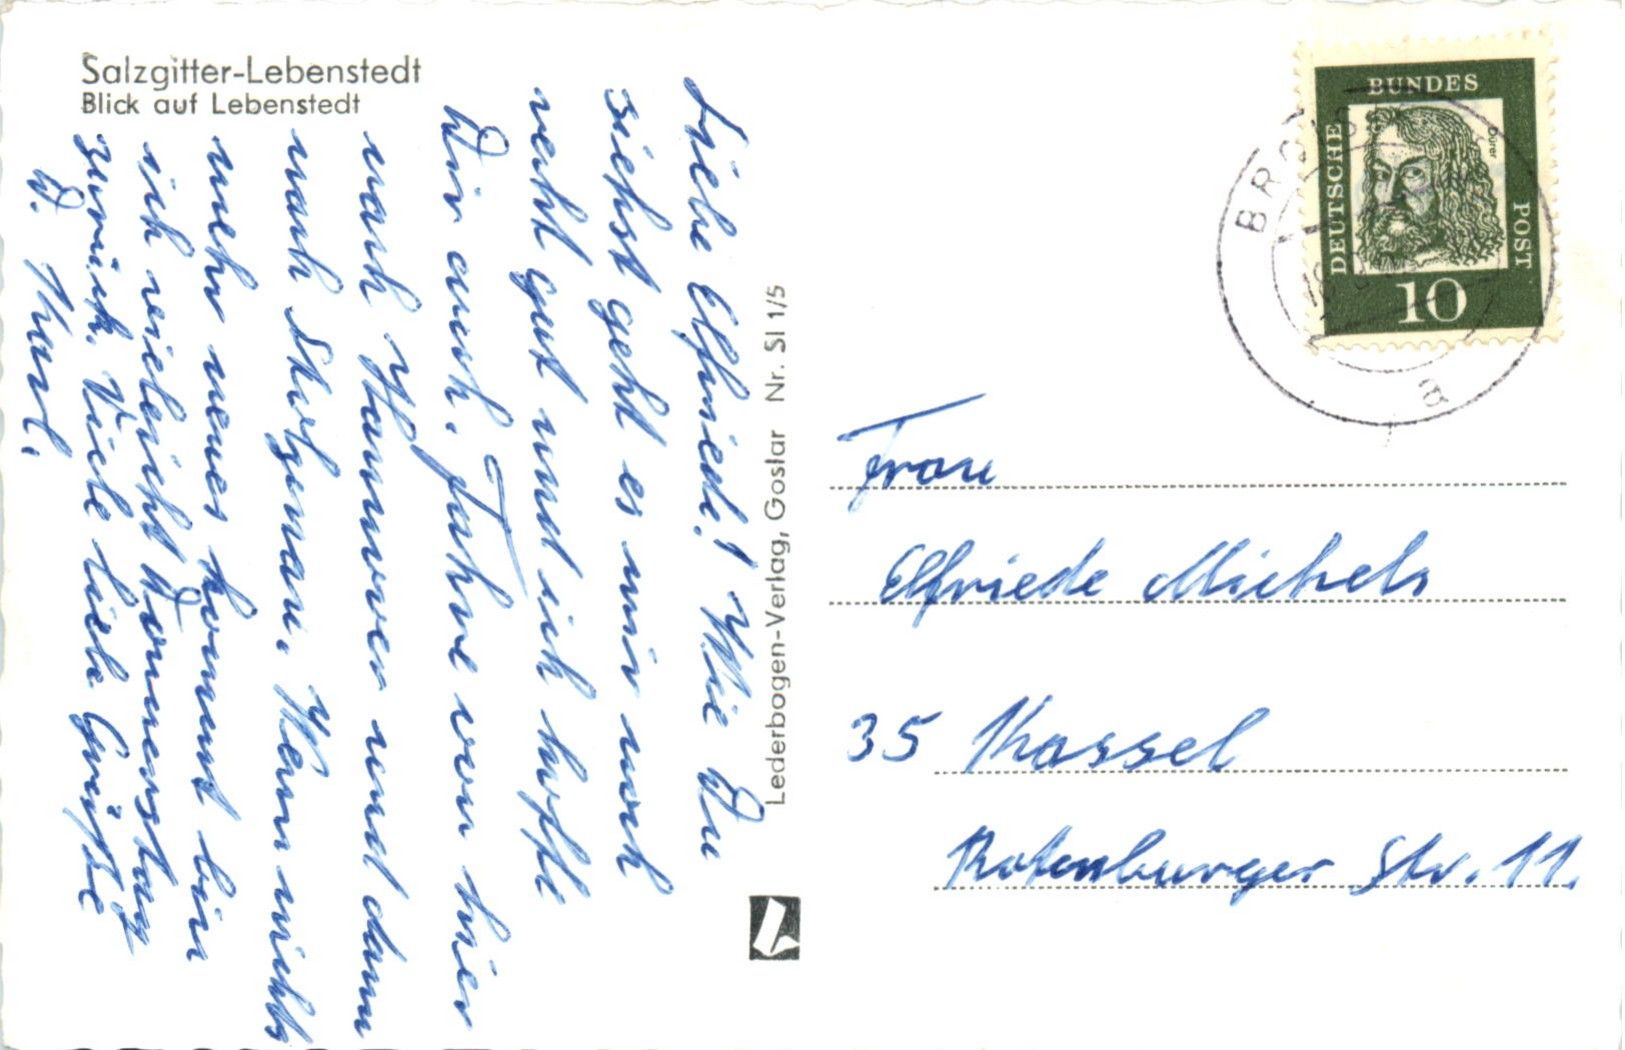 Salzgitter-Lebenstedt
Blick auf Lebenstedt
Liebe Elfriede! Wie Du
siehst geht es mir noch
recht gut und ich hoffe
Dir auch. Fahre von hier
nach Hannover und dann
nach Wenn nichts
mehr neues kommt bin
ich vieleicht Donnerstag
zurück. Viele liebe Grüße
D. Karl.
Lederbogen-Verlag, Goslar Nr. SI 1/5
DEUTSCHE BUNDES POST
Dürer
10
Frau
Elfriede Michels
35 Kassel
Rotenburger Str. 11.